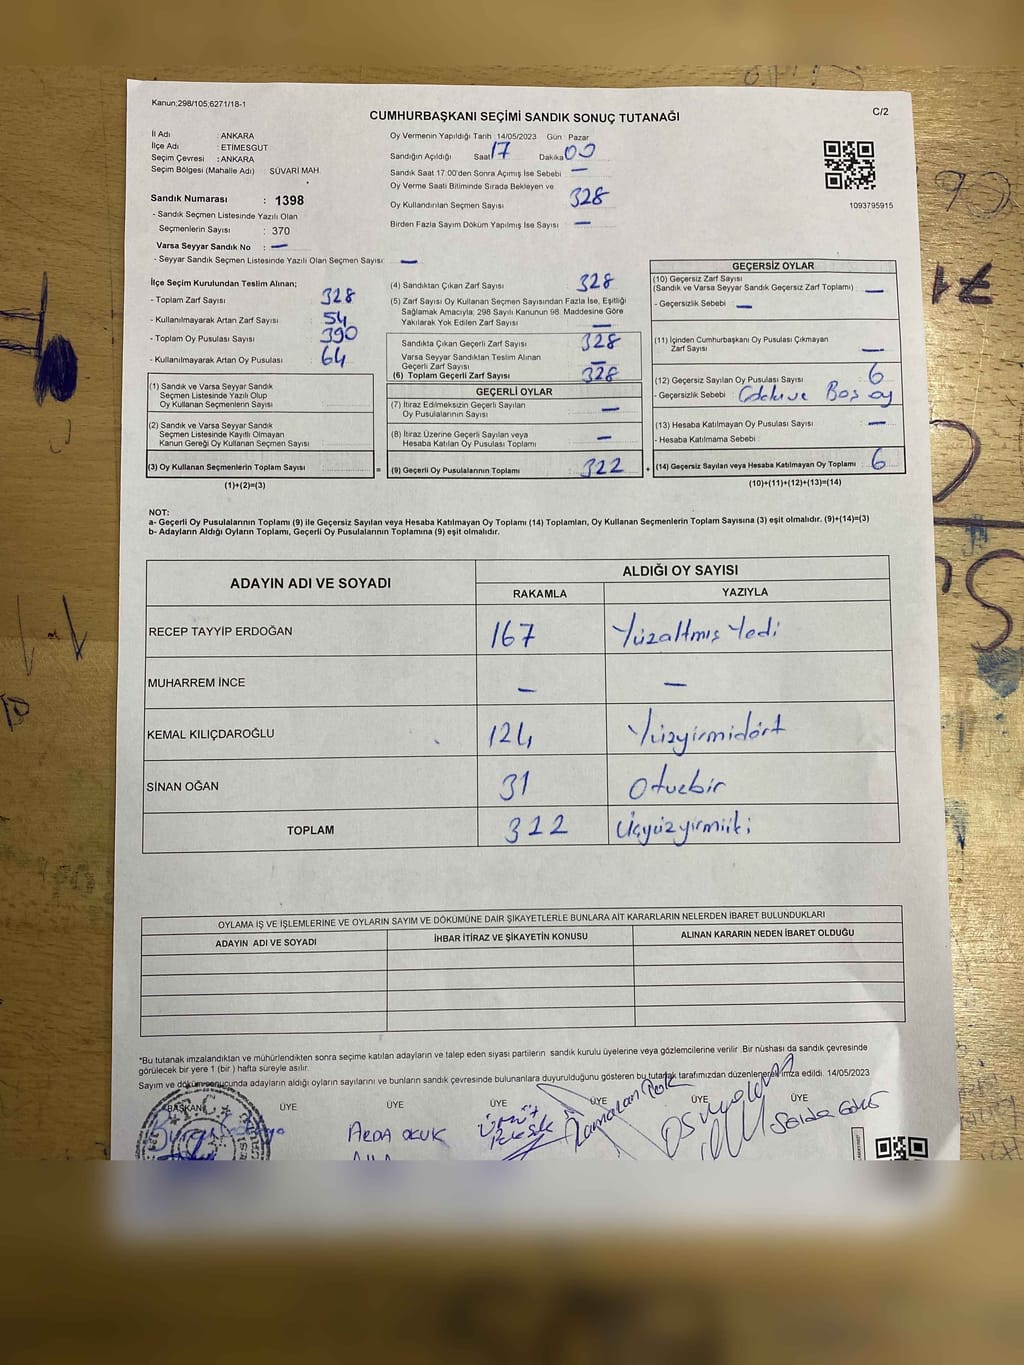 Kanun;298/105;6271/18-1
C/2
CUMHURBAŞKANI SEÇİMİ SANDIK SONUÇ TUTANAĞI
İl Adı : ANKARA
İlçe Adı : ETİMESGUT
Seçim Çevresi : ANKARA
Seçim Bölgesi (Mahalle Adı) SÜVARİ MAH.
Sandık Numarası : 1398
- Sandık Seçmen Listesinde Yazılı Olan
Seçmenlerin Sayısı : 370
Varsa Seyyar Sandık No : —
- Seyyar Sandık Seçmen Listesinde Yazılı Olan Seçmen Sayısı —
Oy Vermenin Yapıldığı Tarih :14/05/2023 Gün Pazar
Sandığın Açıldığı Saat 17 Dakika 00
Sandık Saat 17:00'den Sonra Açımış İse Sebebi —
Oy Verme Saati Bitiminde Sırada Bekleyen ve
Oy Kullandırılan Seçmen Sayısı 328
Birden Fazla Sayım Döküm Yapılmış İse Sayısı —
1093795915
İlçe Seçim Kurulundan Teslim Alınan;
- Toplam Zarf Sayısı 328
- Kullanılmayarak Artan Zarf Sayısı 54
- Toplam Oy Pusulası Sayısı 390
- Kullanılmayarak Artan Oy Pusulası 64
(1) Sandık ve Varsa Seyyar Sandık
Seçmen Listesinde Yazılı Olup
Oy Kullanan Seçmenlerin Sayısı
(2) Sandık ve Varsa Seyyar Sandık
Seçmen Listesinde Kayıtlı Olmayan
Kanun Gereği Oy Kullanan Seçmen Sayısı
(3) Oy Kullanan Seçmenlerin Toplam Sayısı =
(1)+(2)=(3)
(4) Sandıktan Çıkan Zarf Sayısı 328
(5) Zarf Sayısı Oy Kullanan Seçmen Sayısından Fazla İse, Eşitliği
Sağlamak Amacıyla; 298 Sayılı Kanunun 98. Maddesine Göre
Yakılarak Yok Edilen Zarf Sayısı —
Sandıkta Çıkan Geçerli Zarf Sayısı 328
Varsa Seyyar Sandıktan Teslim Alınan
Geçerli Zarf Sayısı —
(6) Toplam Geçerli Zarf Sayısı 328
GEÇERLİ OYLAR
(7) İtiraz Edilmeksizin Geçerli Sayılan
Oy Pusulalarının Sayısı —
(8) İtiraz Üzerine Geçerli Sayılan veya
Hesaba Katılan Oy Pusulası Toplamı —
(9) Geçerli Oy Pusulalarının Toplamı 322 +
GEÇERSİZ OYLAR
(10) Geçersiz Zarf Sayısı
(Sandık ve Varsa Seyyar Sandık Geçersiz Zarf Toplamı) —
- Geçersizlik Sebebi —
(11) İçinden Cumhurbaşkanı Oy Pusulası Çıkmayan
Zarf Sayısı —
(12) Geçersiz Sayılan Oy Pusulası Sayısı 6
- Geçersizlik Sebebi : ve Boş oy
(13) Hesaba Katılmayan Oy Pusulası Sayısı —
- Hesaba Katılmama Sebebi
(14) Geçersiz Sayılan veya Hesaba Katılmayan Oy Toplamı 6
(10)+(11)+(12)+(13)=(14)
NOT:
a- Geçerli Oy Pusulalarının Toplamı (9) ile Geçersiz Sayılan veya Hesaba Katılmayan Oy Toplamı (14) Toplamları, Oy Kullanan Seçmenlerin Toplam Sayısına (3) eşit olmalıdır. (9)+(14)=(3)
b- Adayların Aldığı Oyların Toplamı, Geçerli Oy Pusulalarının Toplamına (9) eşit olmalıdır.
ADAYIN ADI VE SOYADI
ALDIĞI OY SAYISI
RAKAMLA YAZIYLA
RECEP TAYYİP ERDOĞAN 167 Yüzaltmış Yedi
MUHARREM İNCE — —
KEMAL KILIÇDAROĞLU 124 Yüzyirmidört
SİNAN OĞAN 31 Otuzbir
TOPLAM 322 Üçyüzyirmiiki
OYLAMA İŞ VE İŞLEMLERİNE VE OYLARIN SAYIM VE DÖKÜMÜNE DAİR ŞİKAYETLERLE BUNLARA AİT KARARLARIN NELERDEN İBARET BULUNDUKLARI
ADAYIN ADI VE SOYADI İHBAR İTİRAZ VE ŞİKAYETİN KONUSU ALINAN KARARIN NEDEN İBARET OLDUĞU
*Bu tutanak imzalandıktan ve mühürlendikten sonra seçime katılan adayların ve talep eden siyasi partilerin sandık kurulu üyelerine veya gözlemcilerine verilir. Bir nüshası da sandık çevresinde
görülecek bir yere 1 (bir ) hafta süreyle asılır.
Sayım ve döküm sonucunda adayların aldığı oyların sayılarını ve bunların sandık çevresinde bulunanlara duyurulduğunu gösteren bu tutanak tarafımızdan düzenlenerek imza edildi. 14/05/2023
BAŞKAN ÜYE ÜYE ÜYE ÜYE ÜYE ÜYE
ARDA OCUK
Ramazan
Selda